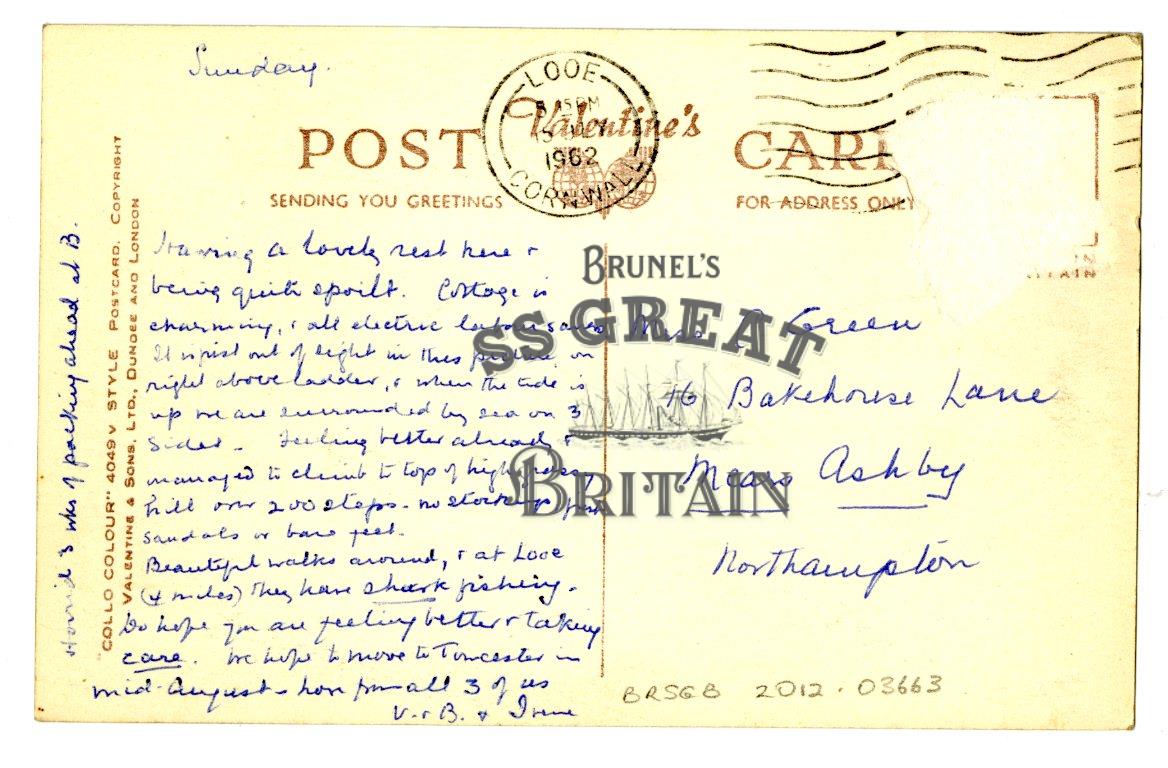 Sunday.
POST Valentine's CARD
SENDING YOU GREETINGS
FOR ADDRESS ONLY
LOOE
15 PM
1962
CORNWALL
Having a lovely rest here &
being quite spoilt. Cottage is
charming, & all electric labour
It is just out of sight in this picture on
right above ladder, & when the tide is
up we are surrounded by sea on 3
sides - Feeling better already &
managed to climb to top of high
hill over 200 steps - no stockings just
sandals or bare feet.
Beautiful walks around, & at Looe
(4 miles) they have shark fishing.
Do hope you are feeling better & taking
care. We hope to move to Towcester in
mid-August - from all 3 of us
V. & B. & Irene
Horrid 3 wks of packing ahead at B.
"COLLO COLOUR" 4049V STYLE POSTCARD. COPYRIGHT
VALENTINE & SONS, LTD., DUNDEE AND LONDON
Green
16 Bakehouse Lane
Mears Ashby
Northampton
BRSGB 2012.03663
BRUNEL'S
SS GREAT
BRITAIN